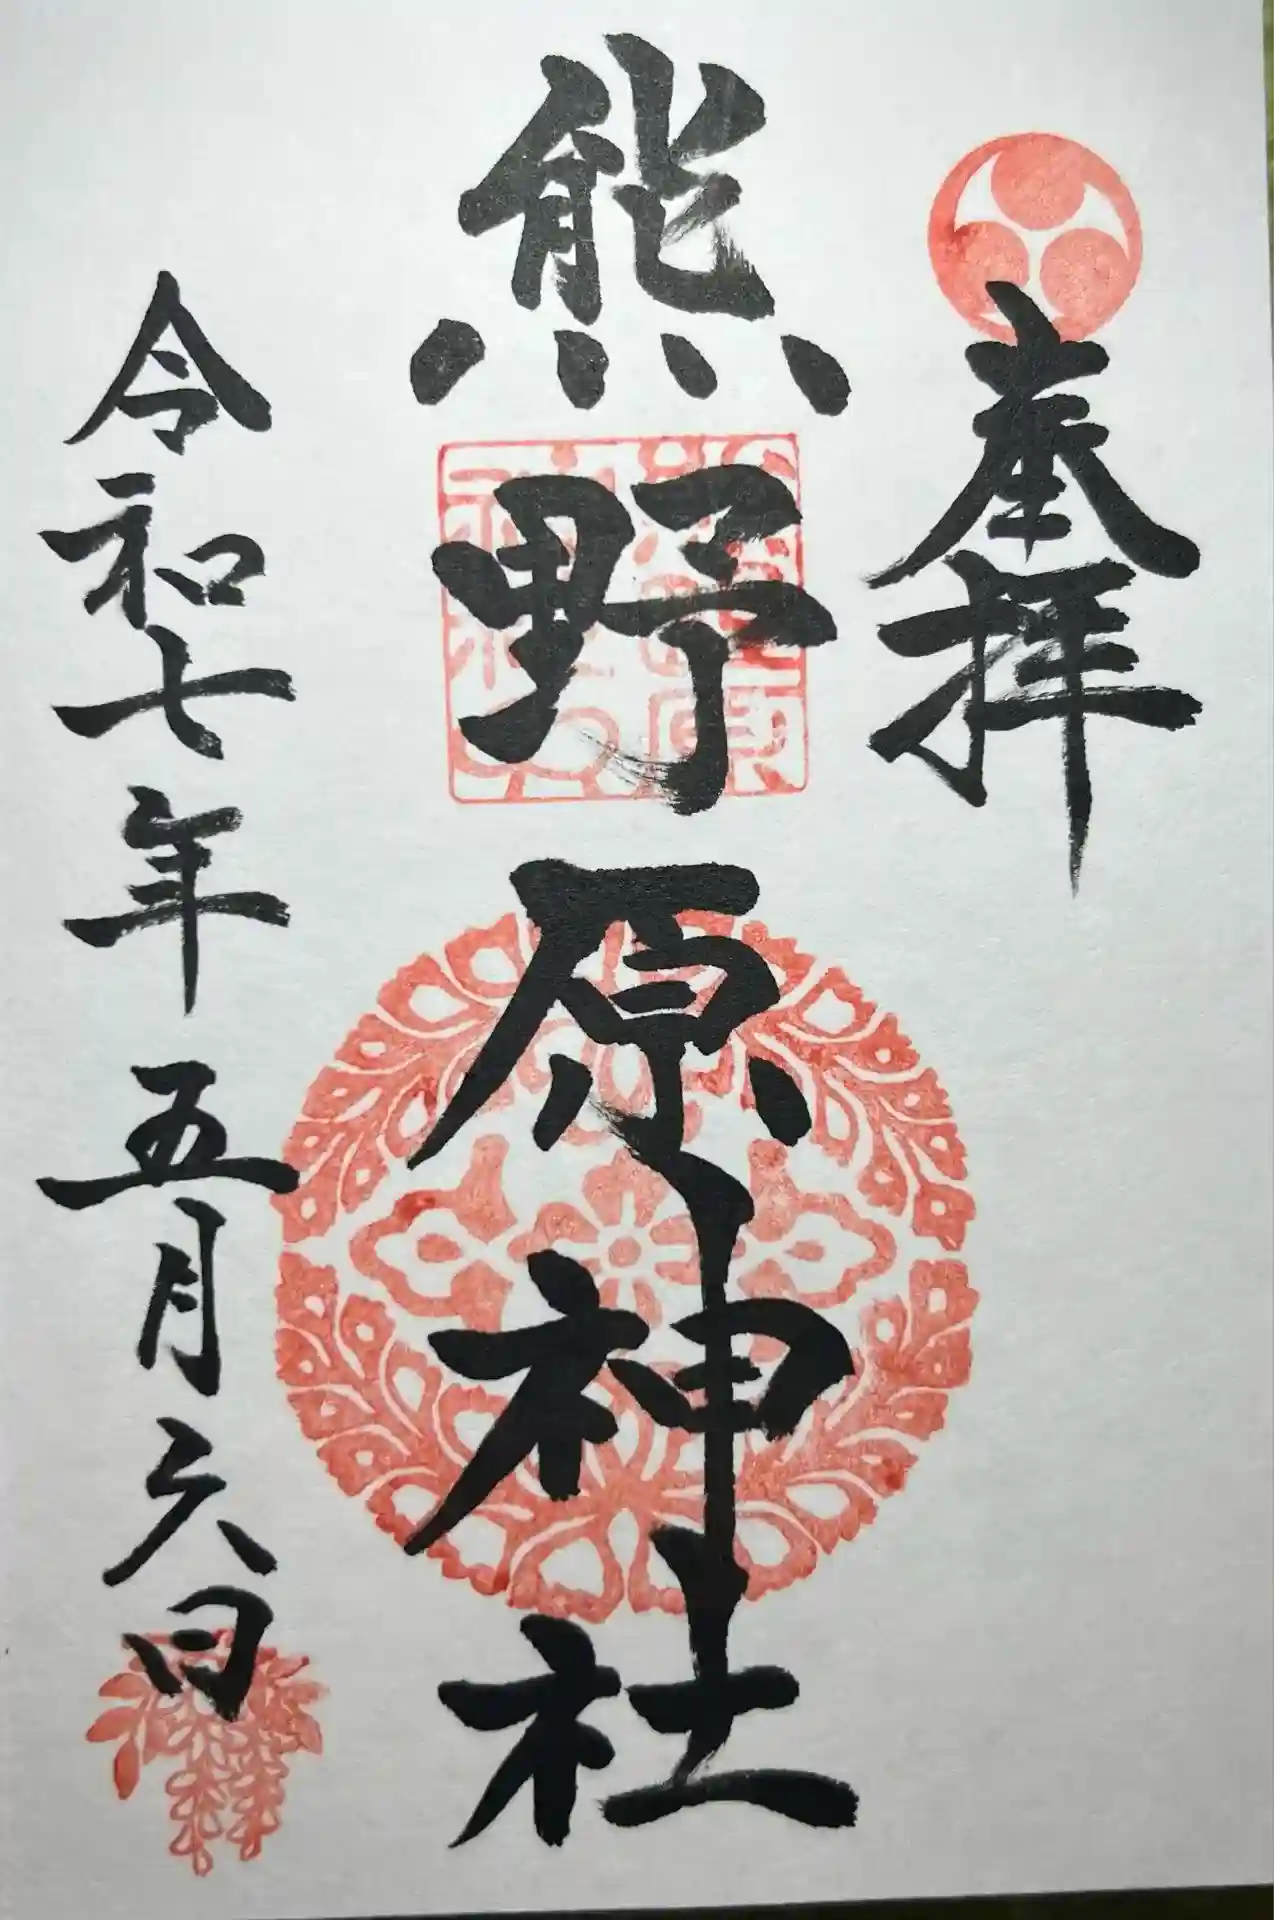 奉拝
熊野原神社
令和七年五月六日